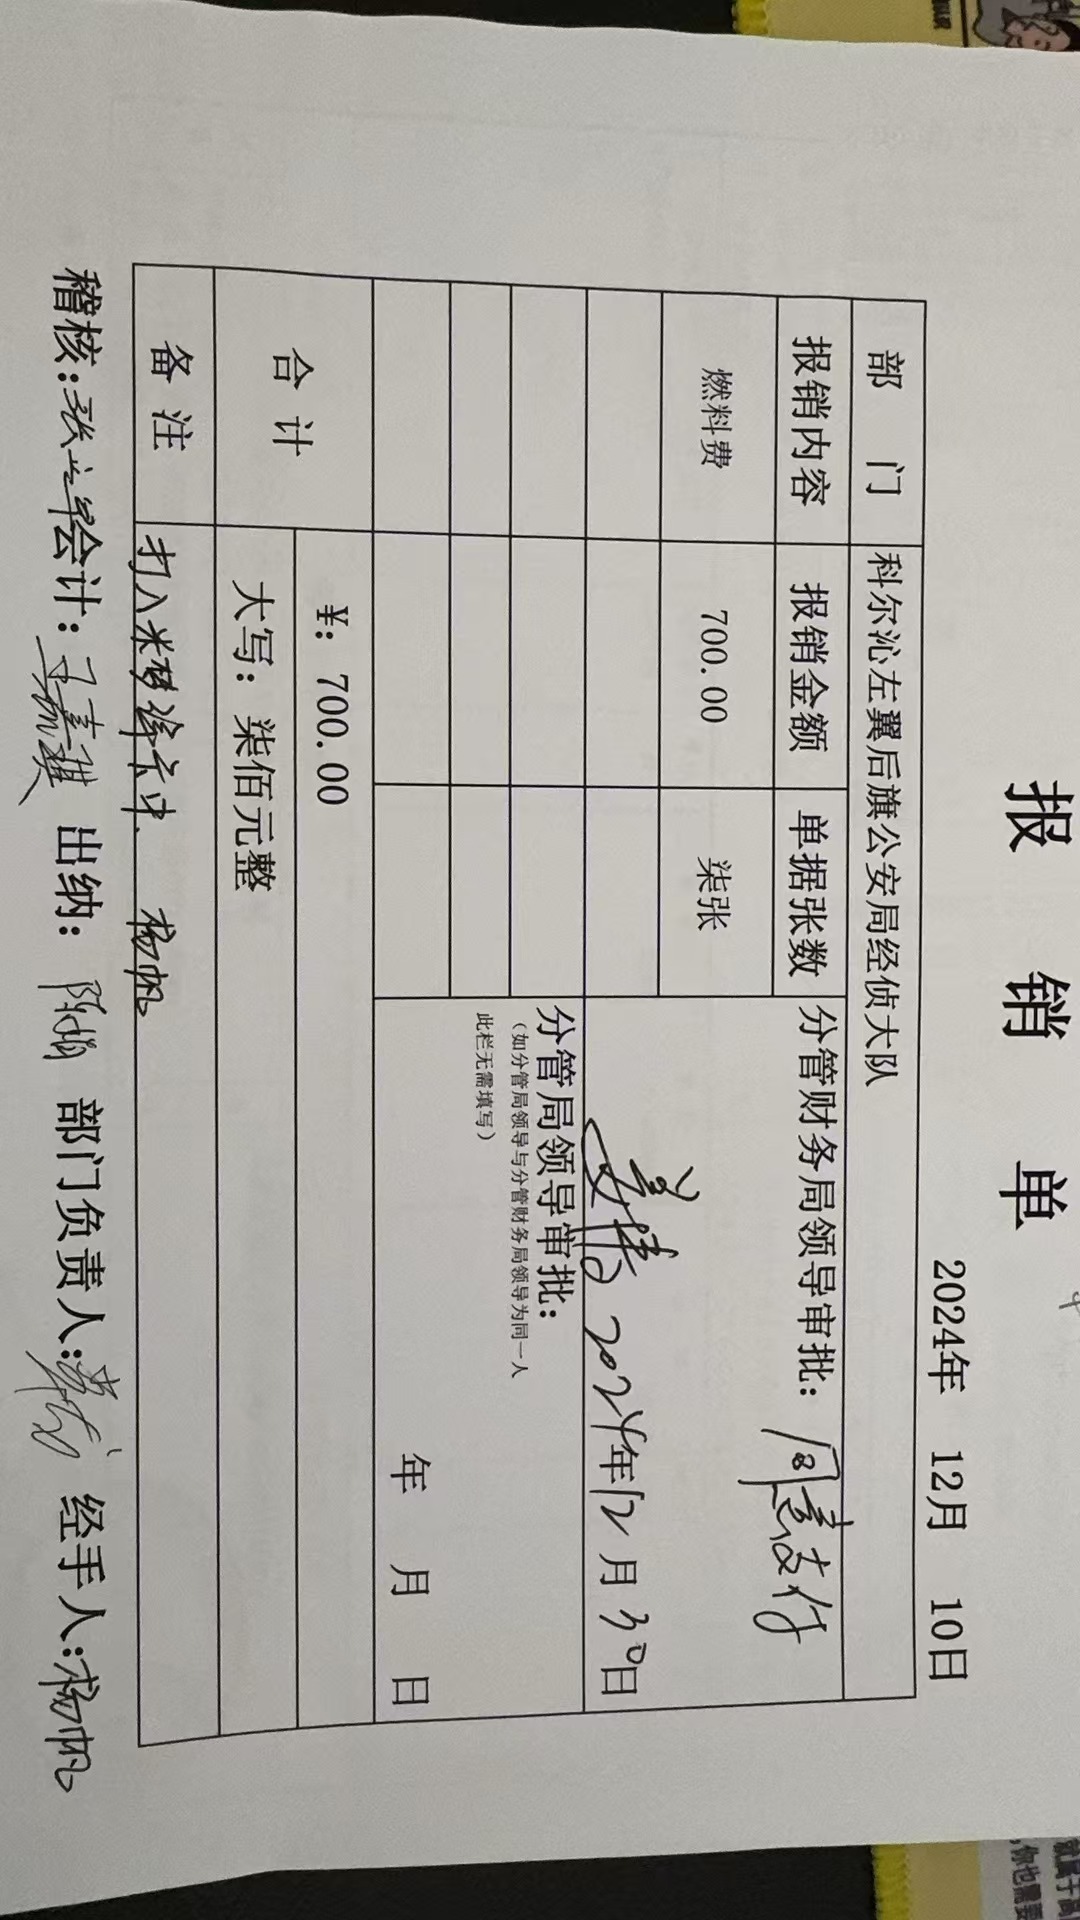 报 销 单
2024年 12月 10日
部 门 科尔沁左翼后旗公安局经侦大队
报销内容 报销金额 单据张数 分管财务局领导审批: 同意支付
燃料费 700.00 柒张
2024年12月30日
分管局领导审批:
(如分管局领导与分管财务局领导为同一人
此栏无需填写)
年 月 日
合 计 ¥: 700.00
大写: 柒佰元整
备 注 打入 卡中. 杨帆
稽核: 会计: 出纳: 部门负责人: 经手人:杨帆